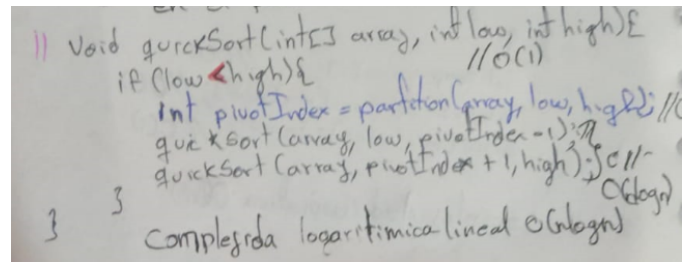 // void quickSort(int[] array, int low, int high){
//O(1)
if (low < high){
int pivotIndex = partition(array, low, high); //
quickSort(array, low, pivotIndex - 1);
quickSort(array, pivotIndex + 1, high); //
O(logn)
}
}
Complejida logaritimica lineal O(nlogn)